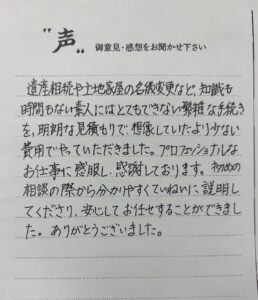 〃声〃 御意見・感想をお聞かせ下さい
遺産相続や土地家屋の名儀変更など、知識も
時間もない素人にはとてもできない繁雑な手続き
を、明朗な見積もりで、想像していたより少ない
費用でやっていただきました。プロフェッショナルな
お仕事に感服し、感謝しております。初めの
相談の際から分かりやすくていねいに説明し
てくださり、安心してお任せすることができまし
た。ありがとうございました。